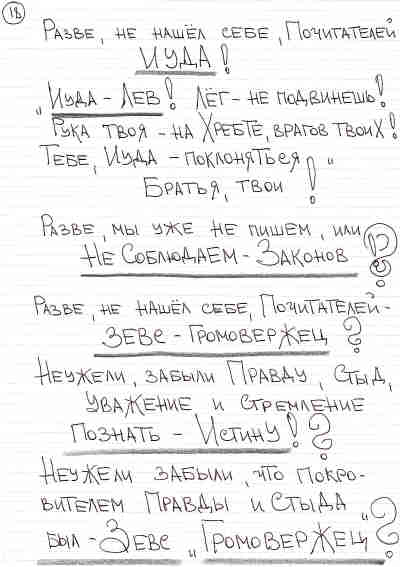 18
Разве, не нашёл себе, Почитателей
ИУДА!
„Иуда - Лев! Лёг - не подвинешь!
Рука твоя - на Хребте, врагов твоих!
Тебе, Иуда - поклоняться
Братья, твои!“
Разве, мы уже не пишем, или
Не Соблюдаем - Законов?
Разве, не нашёл себе, Почитателей -
ЗЕВС - ГРОМОВЕРЖЕЦ?
Неужели, забыли Правду, Стыд,
уважение и стремление
познать - Истину!?
Неужели забыли, что покро-
вителем Правды и Стыда
был - Зевс „Громовержец“?